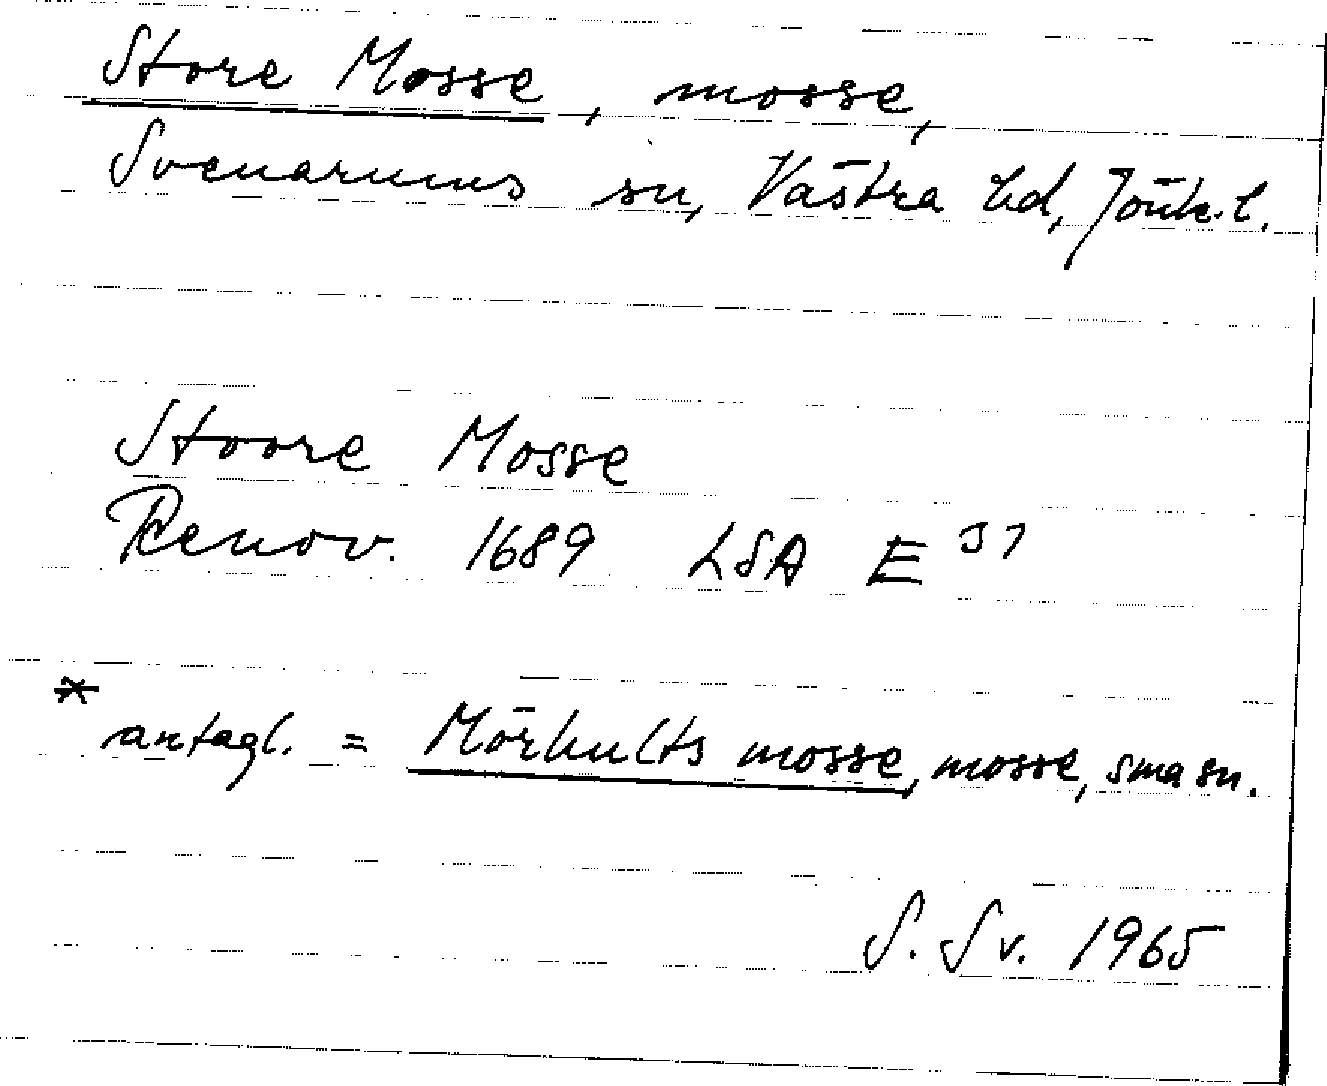 Store Mosse, mosse,
Svenarums sn, Västra hd, Jönk. l.
Stoore Mosse
Renov. 1689 LSA E 37
* antagl. = Mörhults mosse, mosse, sma sn.
S. Sv. 1965